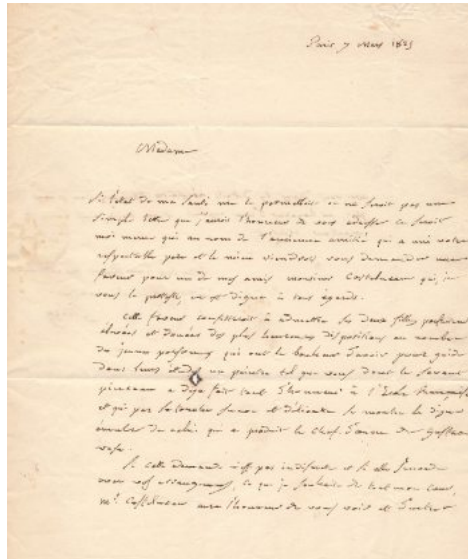 Paris 7 Mars 1825
Madame
Si l'état de ma santé me le permettoit ce ne seroit pas une
simple lettre que j'aurois l'honneur de vous adresser ce seroit
moi même qui au nom de l'ancienne amitié qui a uni votre
respectable père et le mien viendrois vous demander une
faveur pour un de mes amis monsieur qui, je
vous le proteste, en est digne à tous égards.
Cette faveur consisteroit à admettre ses deux filles parfaitement
élevées et douées des plus heureuses dispositions au nombre
des jeunes personnes qui ont le bonheur d'avoir pour guide
dans leurs études un peintre tel que vous dont le savant
pinceau a déjà fait tant d'honneur à l'Ecole française
et qui par sa touche suave et délicate se montre la digne
de celui qui a produit le chef d'oeuvre de
Si cette demande n'est pas indiscrète et si elle s'accorde
avec vos arrangemens, ce que je souhaite de tout mon coeur,
mr. aura l'honneur de vous voir et